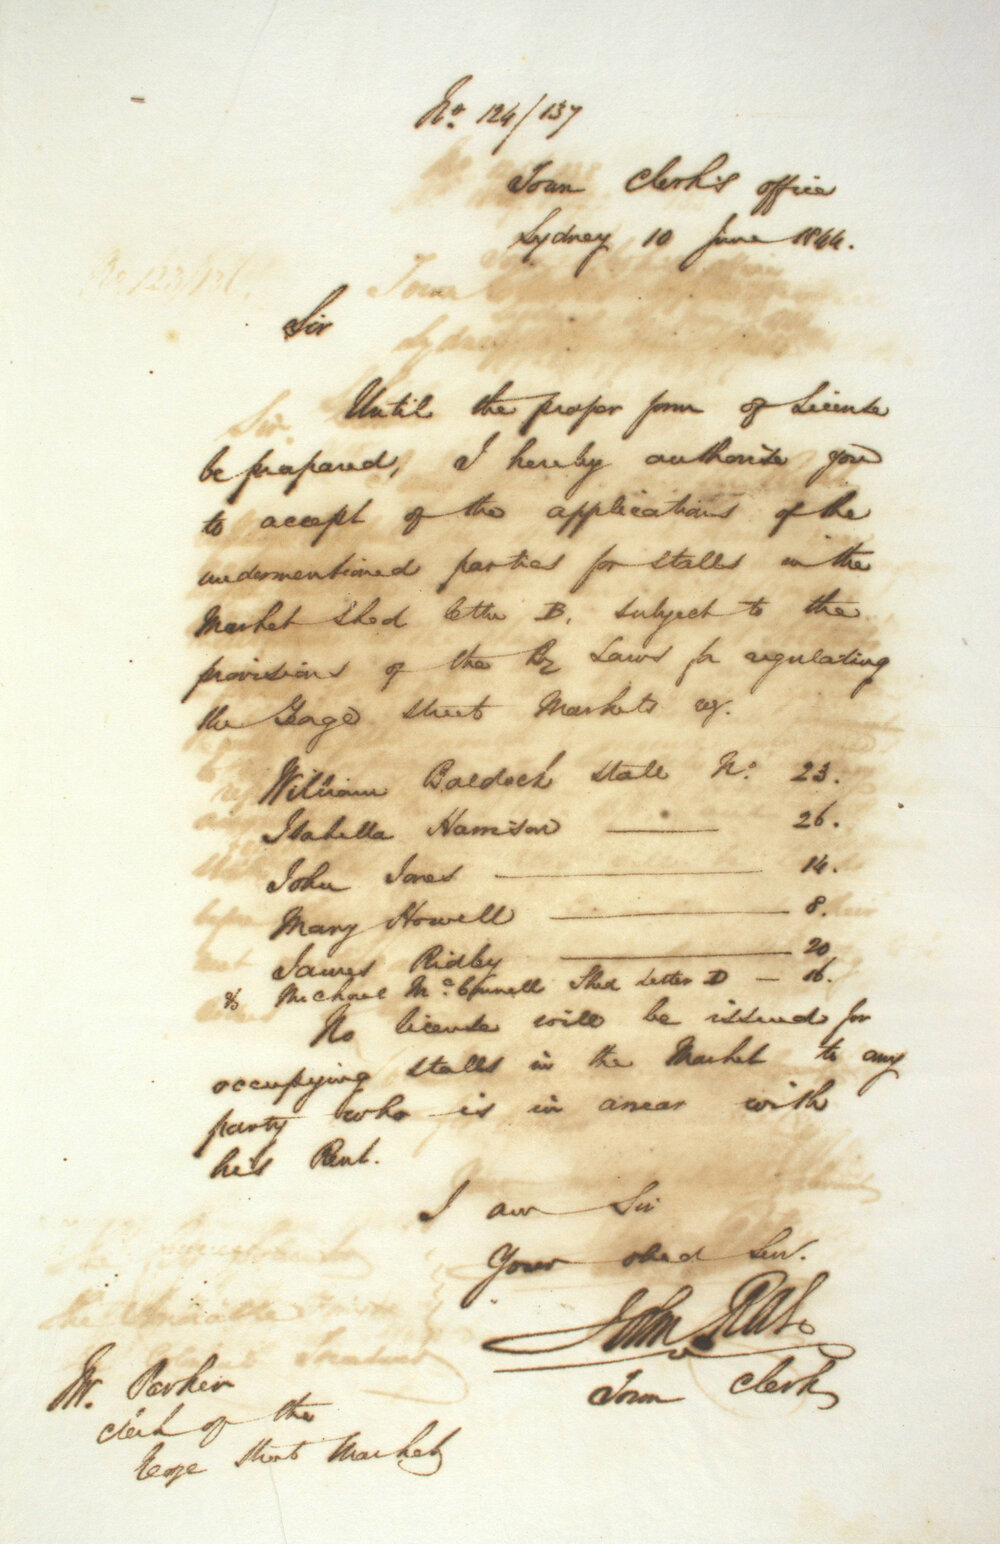 No. 124/137
Town Clerk's office
Sydney 10 June 1844.
Sir
Until the proper form of License
be prepared, I hereby authorise you
to accept of the applications of the
undermentioned parties for stalls in the
Market Shed letter B, subject to the
provisions of the By Laws for regulating
the George Street Markets
William Baldock Stall No. 23.
Isabella Harrison — 26.
John Jones — 14.
Mary Howell — 8.
James Ridley — 20
& Michael McConnell Shed Letter D — 16.
No license will be issued for
occupying stalls in the Market to any
party who is in arrear with
his Rent.
I am Sir
Your obed Serv.
John Rae
Town Clerk
Mr. Parker
Clerk of the
George Street Market